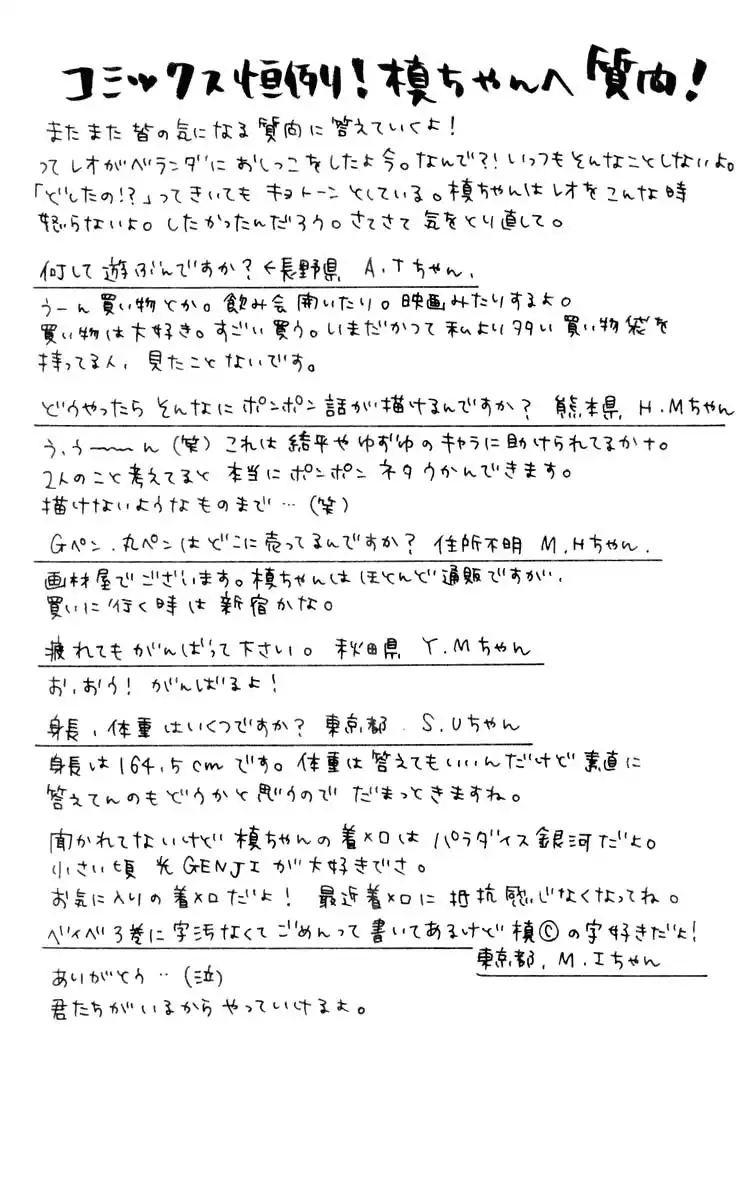 コミックス恒例！槙ちゃんへ質問！
またまた皆の気になる質問に答えていくよ！
ってレオがベランダにおしっこをしたよ今。なんで？！いっつもそんなことしないよ。
「どしたの！？」ってきいてもキョトーンとしている。槙ちゃんはレオをこんな時
怒らないよ。したかったんだろう。さてさて気をとり直して。
何して遊ぶんですか？←長野県 A.Tちゃん.
うーん買い物とか。飲み会開いたり。映画みたりするよ。
買い物は大好き。すごい買う。いまだかつて私より多い買い物袋を
持ってる人、見たことないです。
どうやったらそんなにポンポン話が描けるんですか？ 熊本県, H.Mちゃん
う、う〜〜ん（笑）これは綺平やゆずゆのキャラに助けられてるかナ。
2人のこと考えてると本当にポンポンネタうかんできます。
描けないようなものまで…（笑）
Gペン、丸ペンはどこに売ってるんですか？ 住所不明 M.Hちゃん.
画材屋でございます。槙ちゃんはほとんど通販ですが、
買いに行く時は新宿かな。
疲れてもがんばって下さい。 秋田県 Y.Mちゃん
お、おう！がんばるよ！
身長、体重はいくつですか？ 東京都. S.Uちゃん
身長は164.5cmです。体重は答えてもいいんだけど素直に
答えてんのもどうかと思うのでだまっときますね。
聞かれてないけど槙ちゃんの着メロはパラダイス銀河だよ。
小さい頃光GENJIが大好きでさ。
お気に入りの着メロだよ！ 最近着メロに抵抗感じなくなってね。
ベイベ3巻に字汚なくてごめんって書いてあるけど槙ⓒの字好きだよ！
東京都, M.Iちゃん
ありがとう…（泣）
君たちがいるからやっていけるよ。